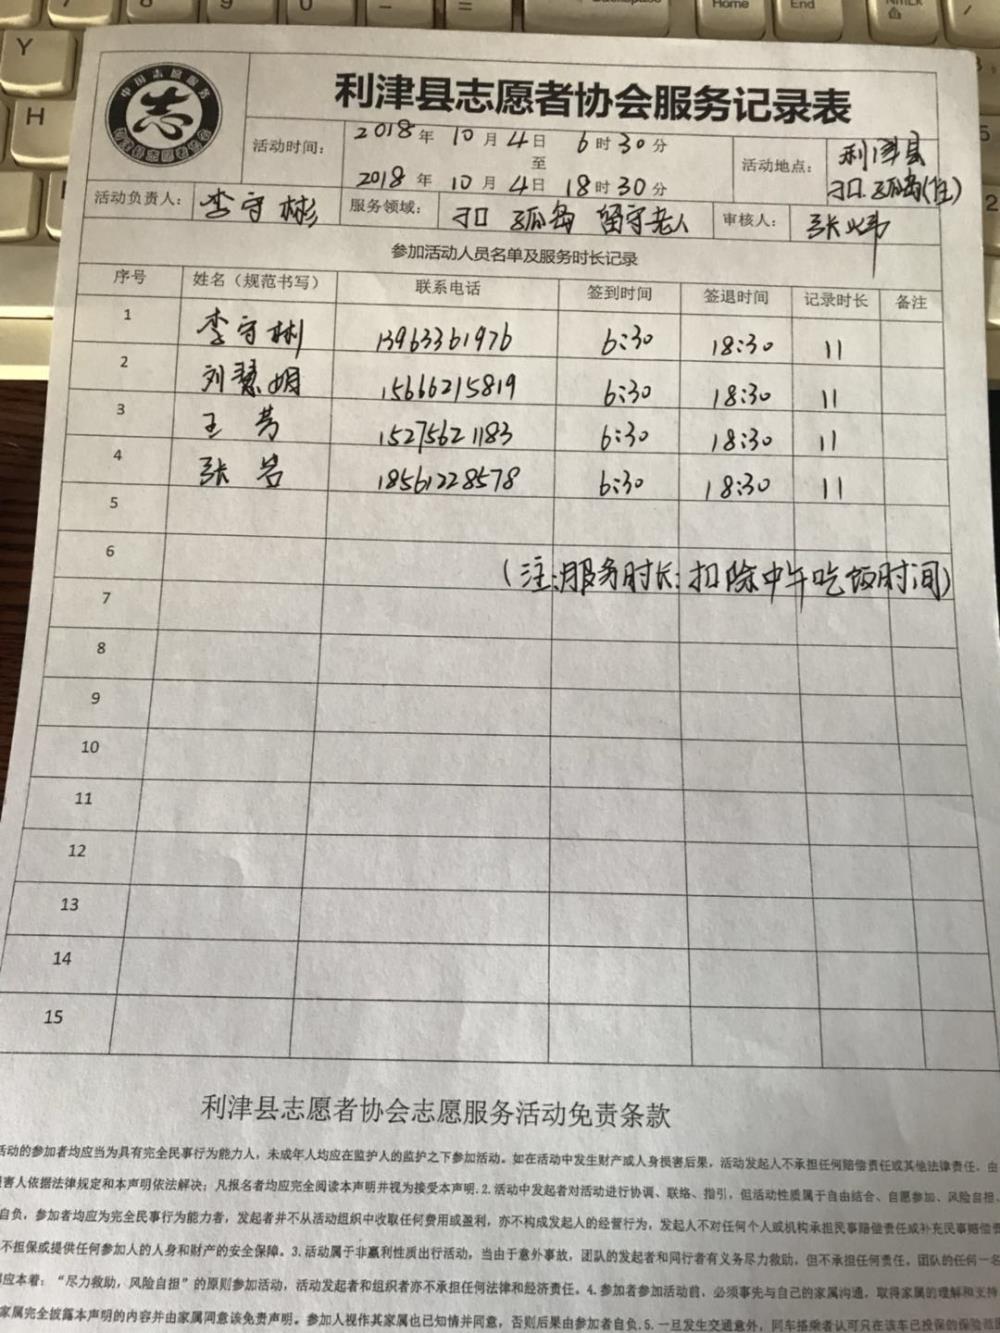 Y
H
Home
End
中国志愿服务
志
利津县志愿者协会服务记录表
活动时间：
2018年 10月4日 6时30分
至
2018年 10月4日 18时30分
活动地点：
利津县
刁口.孤岛(住)
活动负责人： 李守彬
服务领域： 刁口 孤岛 留守老人
审核人： 张炜
参加活动人员名单及服务时长记录
序号 姓名（规范书写） 联系电话 签到时间 签退时间 记录时长 备注
1 李守彬 13963361976 6:30 18:30 11
2 刘慧娟 15666215819 6:30 18:30 11
3 王芳 15275621183 6:30 18:30 11
4 张岩 18561228578 6:30 18:30 11
5
6
(注:服务时长:扣除中午吃饭时间)
7
8
9
10
11
12
13
14
15
利津县志愿者协会志愿服务活动免责条款
活动的参加者均应当为具有完全民事行为能力人，未成年人均应在监护人的监护之下参加活动。如在活动中发生财产或人身损害后果，活动发起人不承担任何赔偿责任或其他法律责任，由
害人依据法律规定和本声明依法解决；凡报名者均应完全阅读本声明并视为接受本声明.2.活动中发起者对活动进行协调、联络、指引，但活动性质属于自由结合、自愿参加、风险自担、
自负，参加者均应为完全民事行为能力者，发起者并不从活动组织中收取任何费用或盈利，亦不构成发起人的经营行为，发起人不对任何个人或机构承担民事赔偿责任或补充民事赔偿责
不担保或提供任何参加人的人身和财产的安全保障。3.活动属于非赢利性质出行活动，当由于意外事故，团队的发起者和同行者有义务尽力救助，但不承担任何责任。团队的任何一名
应本着：“尽力救助，风险自担”的原则参加活动，活动发起者和组织者亦不承担任何法律和经济责任。4.参加者参加活动前，必须事先与自己的家属沟通，取得家属的理解和支持
家属完全披露本声明的内容并由家属同意该免责声明。参加人视作其家属也已知情并同意，否则后果由参加者自负.5.一旦发生交通意外，同车搭乘者认可只在该车已投保的保险范